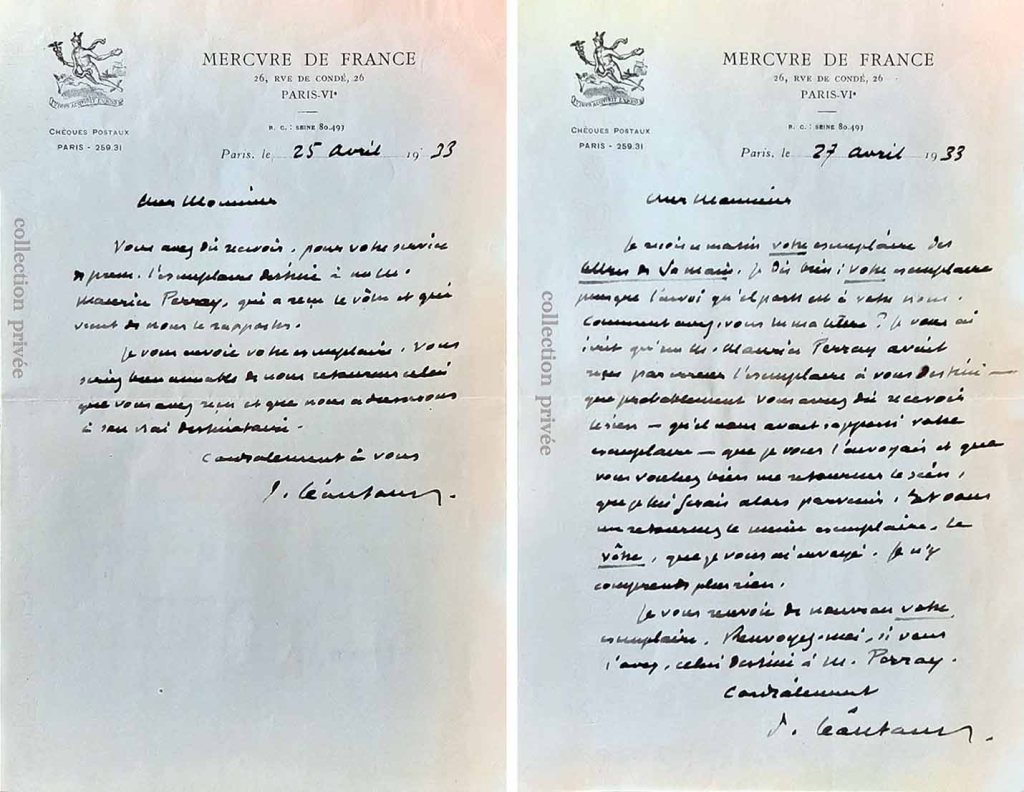 MERCVRE DE FRANCE
26, RVE DE CONDÉ, 26
PARIS-VIe
R. C. : SEINE 80.493
CHÈQUES POSTAUX
PARIS - 259.31
Paris, le 25 avril 1933
Cher Monsieur
Vous avez dû recevoir, pour votre service
de presse, l'exemplaire destiné à un M.
Maurice Perray, qui a reçu le vôtre et qui
vient de nous le rapporter.
Je vous envoie votre exemplaire. Vous
seriez bien aimable de nous retourner celui
que vous avez reçu et que nous adresserons
à son vrai destinataire.
Cordialement à vous
P. Léautaud.
collection privée
MERCVRE DE FRANCE
26, RVE DE CONDÉ, 26
PARIS-VIe
R. C. : SEINE 80.493
CHÈQUES POSTAUX
PARIS - 259.31
Paris, le 27 avril 1933
Cher Monsieur
Je reçois ce matin votre exemplaire des
lettres de Samain. Je dis bien : votre exemplaire
puisque l'envoi qu'il porte est à votre nom.
Comment avez-vous lu ma lettre ? Je vous ai
écrit qu'un M. Maurice Perray avait
reçu par erreur l'exemplaire à vous destiné —
que probablement vous avez dû recevoir
le sien — qu'il nous avait rapporté votre
exemplaire — que je vous l'envoyais et que
vous vouliez bien me retourner le sien,
que je lui ferais alors parvenir. Et vous
me retournez le même exemplaire, le
vôtre, que je vous ai envoyé. Je n'y
comprends plus rien.
Je vous renvoie de nouveau votre
exemplaire. Renvoyez-moi, si vous
l'avez, celui destiné à M. Perray.
Cordialement
P. Léautaud.
collection privée